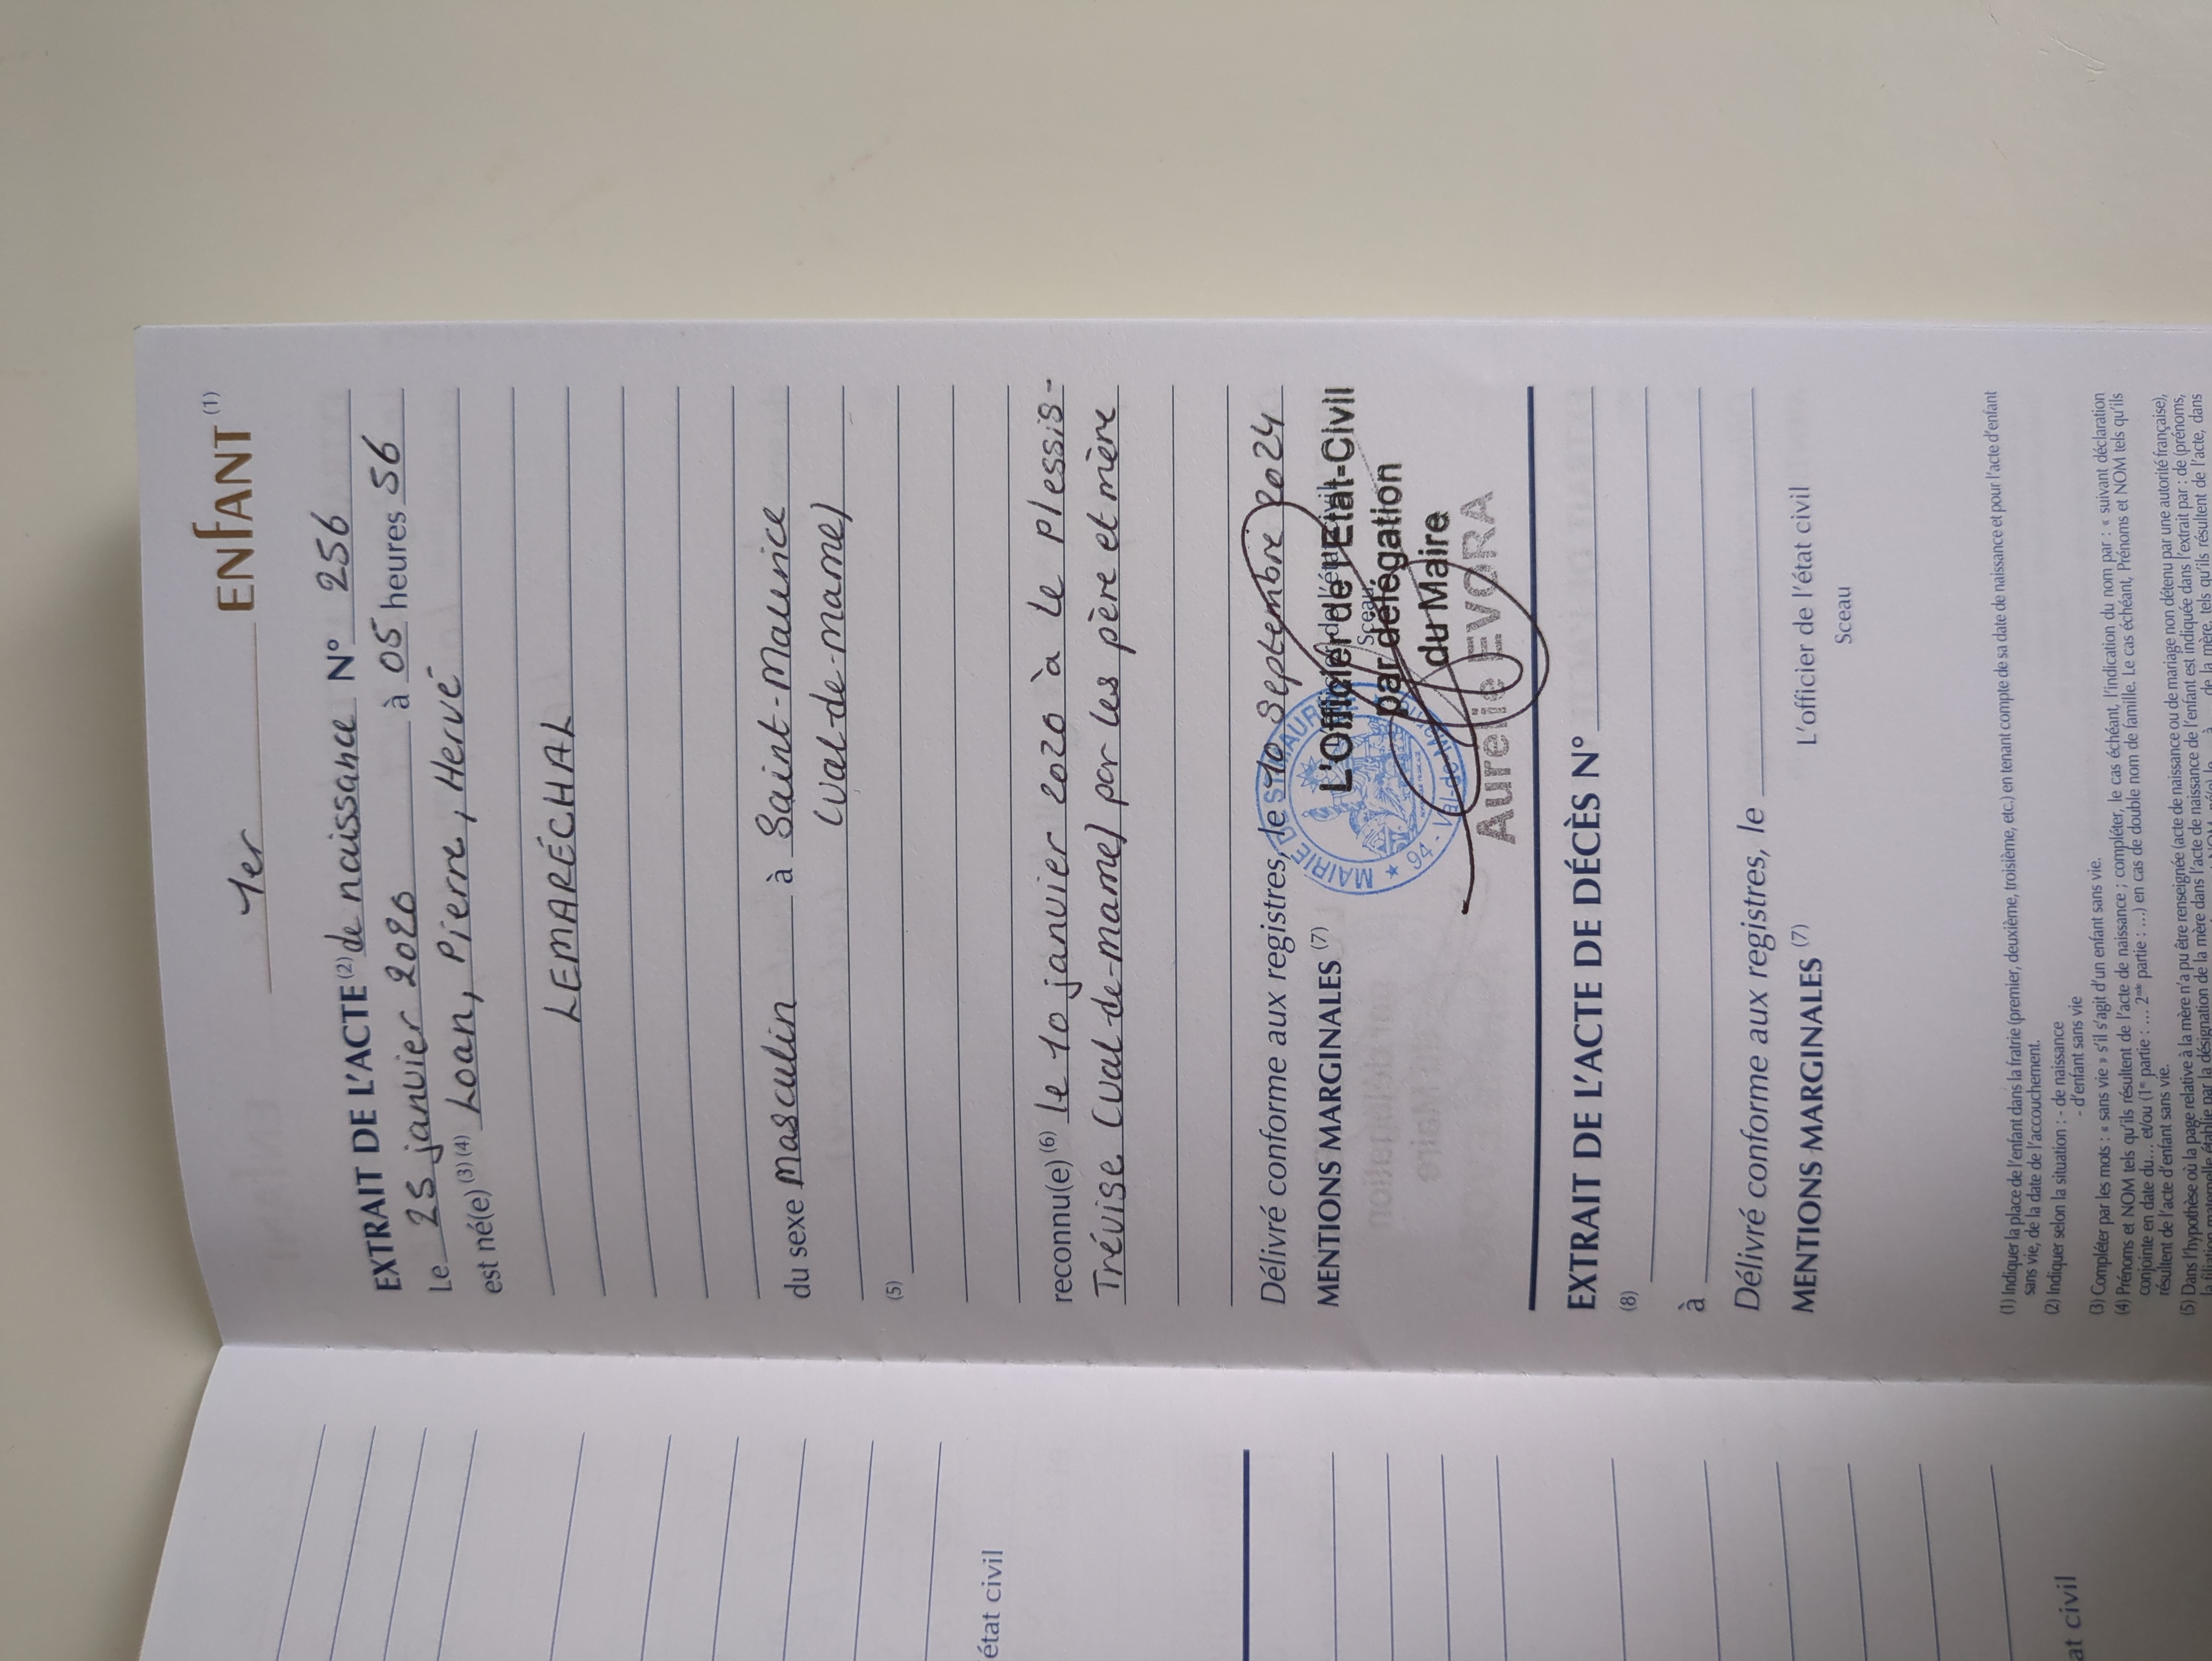 1er ENFANT (1)
EXTRAIT DE L'ACTE (2) de naissance N° 256
Le 25 janvier 2020 à 05 heures 56
est né(e) (3) (4) Loan, Pierre, Hervé
LEMARÉCHAL
du sexe masculin à Saint-Maurice
(Val-de-marne)
(5)
reconnu(e) (6) le 10 janvier 2020 à Le Plessis-
Trévise (Val-de-marne) par les père et mère
Délivré conforme aux registres, le 10 Septembre 2024
MENTIONS MARGINALES (7)
L'Officier de l'état civil
Sceau
L'Officier de Etat-Civil
par délégation
du Maire
Aurelie EVORA
MAIRIE DE ST MAURICE
94 - Val-de-Marne
EXTRAIT DE L'ACTE DE DÉCÈS N°
(8)
à
Délivré conforme aux registres, le
MENTIONS MARGINALES (7)
L'officier de l'état civil
Sceau
(1) Indiquer la place de l'enfant dans la fratrie (premier, deuxième, troisième, etc.) en tenant compte de sa date de naissance et pour l'acte d'enfant
sans vie, de la date de l'accouchement.
(2) Indiquer selon la situation : - de naissance
- d'enfant sans vie
(3) Compléter par les mots : « sans vie » s'il s'agit d'un enfant sans vie.
(4) Prénoms et NOM tels qu'ils résultent de l'acte de naissance ; compléter, le cas échéant, l'indication du nom par : « suivant déclaration
conjointe en date du… et/ou (1re partie : … 2nde partie : …) en cas de double nom de famille. Le cas échéant, Prénoms et NOM tels qu'ils
résultent de l'acte d'enfant sans vie.
(5) Dans l'hypothèse où la page relative à la mère n'a pu être renseignée (acte de naissance ou de mariage non détenu par une autorité française),
la filiation maternelle établie par la désignation de la mère dans l'acte de naissance de l'enfant est indiquée dans l'extrait par : de (prénoms,
de la mère, tels qu'ils résultent de l'acte, dans
état civil
at civil